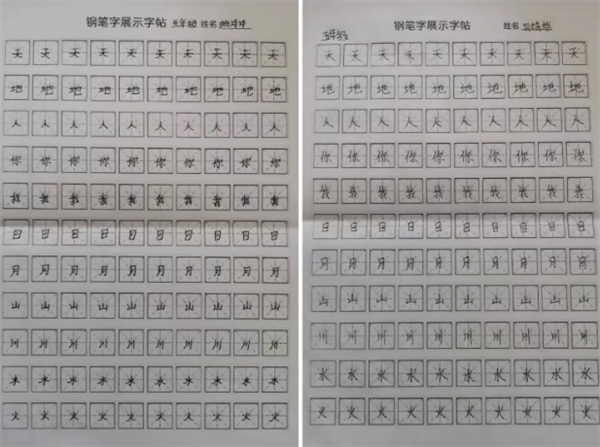 钢笔字展示字帖 五年级 姓名
天 天 天 天 天 天 天 天 天 天
地 地 地 地 地 地 地 地 地 地
人 人 人 人 人 人 人 人 人 人
你 你 你 你 你 你 你 你 你 你
我 我 我 我 我 我 我 我 我 我
日 日 日 日 日 日 日 日 日 日
月 月 月 月 月 月 月 月 月 月
山 山 山 山 山 山 山 山 山 山
川 川 川 川 川 川 川 川 川 川
水 水 水 水 水 水 水 水 水 水
火 火 火 火 火 火 火 火 火 火
钢笔字展示字帖 姓名
五年级
天 天 天 天 天 天 天 天 天 天
地 地 地 地 地 地 地 地 地 地
人 人 人 人 人 人 人 人 人 人
你 你 你 你 你 你 你 你 你 你
我 我 我 我 我 我 我 我 我 我
日 日 日 日 日 日 日 日 日 日
月 月 月 月 月 月 月 月 月 月
山 山 山 山 山 山 山 山 山 山
川 川 川 川 川 川 川 川 川 川
水 水 水 水 水 水 水 水 水 水
火 火 火 火 火 火 火 火 火 火